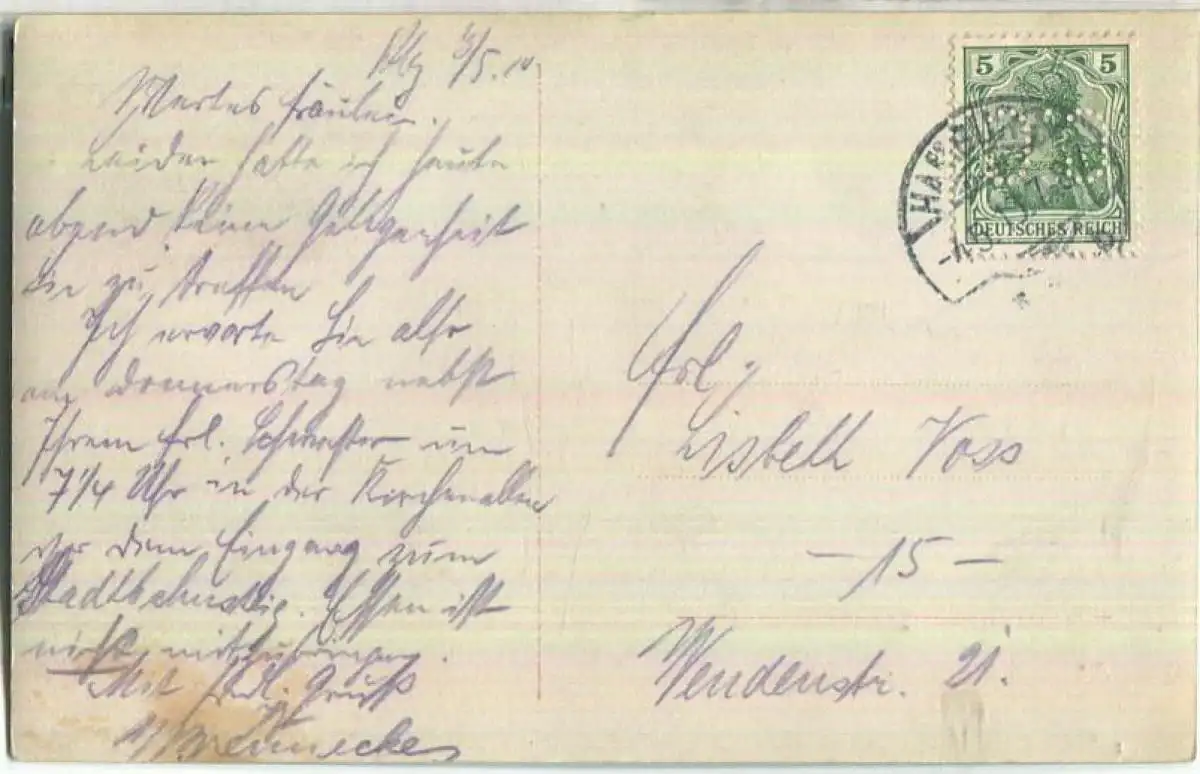 Hbg 3/5.10.
Wertes Fräulein.
Leider hatte ich heute
abend keine Gelegenheit
Sie zu treffen
Ich erwarte Sie also
am Donnerstag nebst
Ihrem Frl. Schwester um
7 1/4 Uhr in der Kirchenallee
vor dem Eingang zum
Stadtbahnsteig. Essen ist
nicht mitzubringen.
Mit frdl. Gruß
Brennecke
5 5
DEUTSCHES REICH
HAMBURG
Frl.
Lisbeth Voss
- 15 -
Wendenstr. 21.